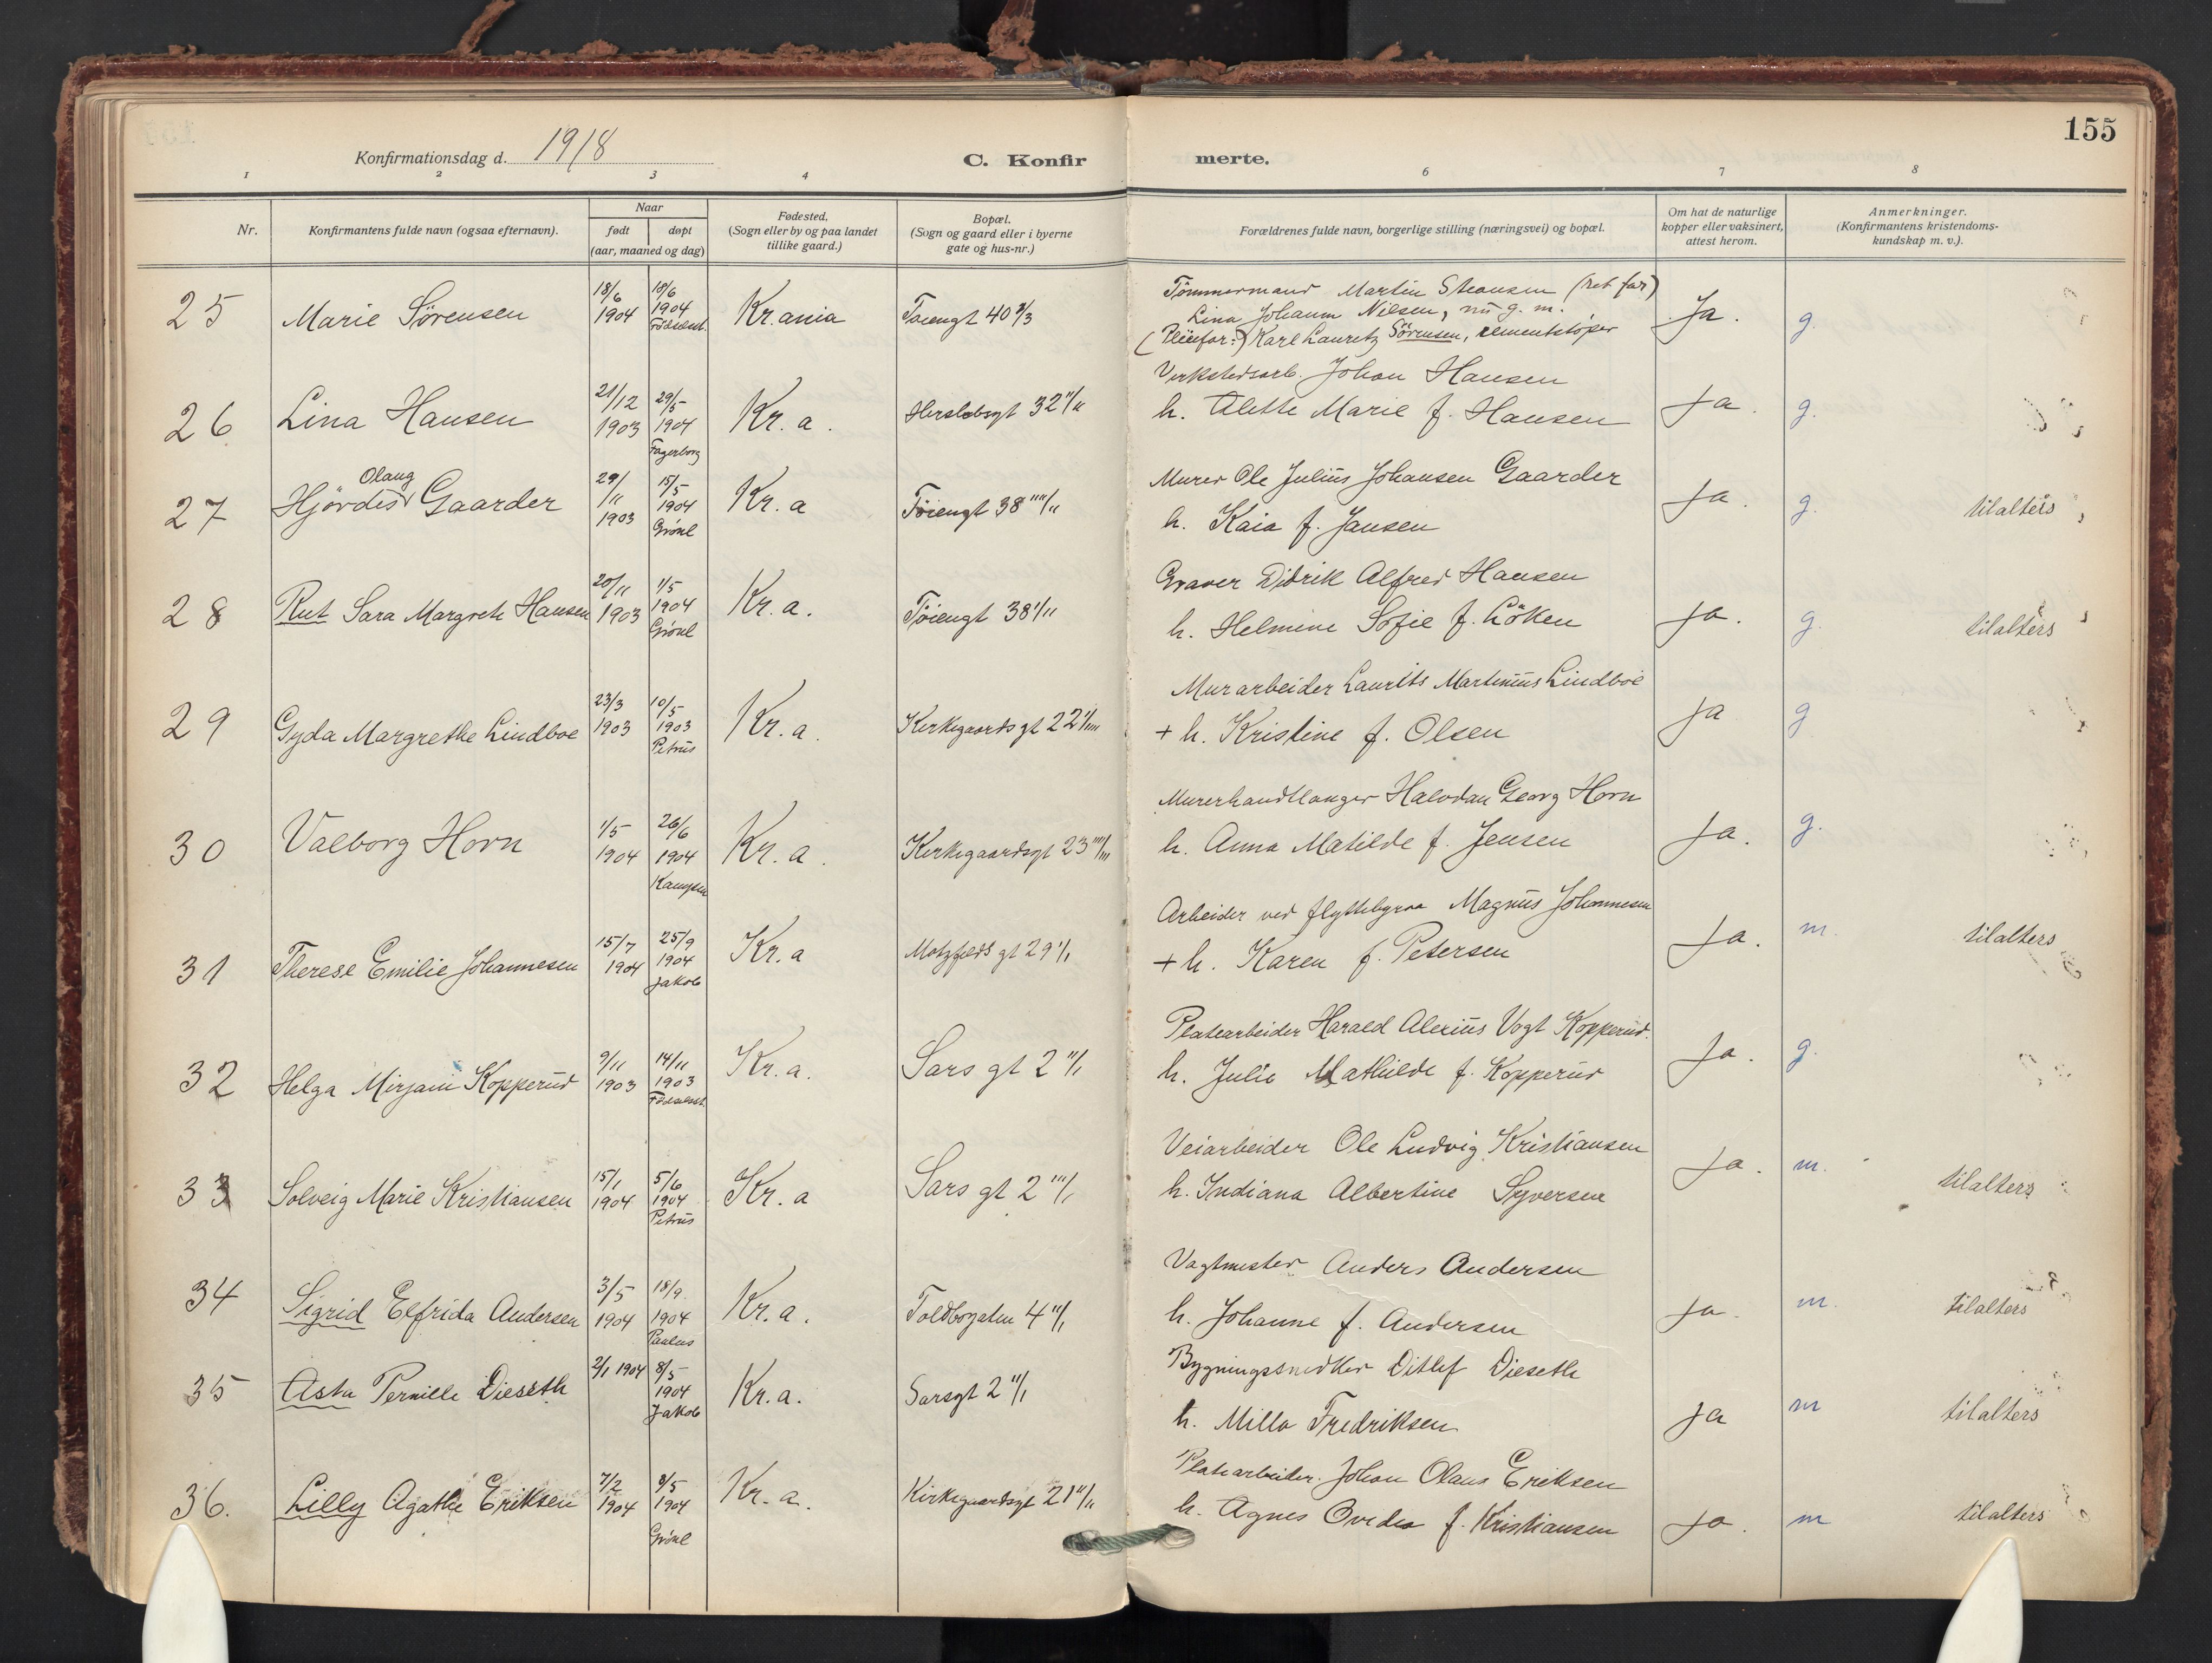 155
Konfirmationsdag d. 1918
C. Konfirmerte.
1 2 3 4 6 7 8
Nr.
Konfirmantens fulde navn (ogsaa efternavn).
Naar
født døpt
(aar, maaned og dag)
Fødested.
(Sogn eller by og paa landet
tillike gaard.)
Bopæl.
(Sogn og gaard eller i byerne
gate og hus-nr.)
Forældrenes fulde navn, borgerlige stilling (næringsvei) og bopæl.
Om hat de naturlige
kopper eller vaksinert,
attest herom.
Anmerkninger.
(Konfirmantens kristendoms-
kundskap m. v.).
25 Marie Sørensen
18/6 1904
18/6 1904 Fødselsst.
Kr.ania
Tøiengt 40
Tømmermand Martin (ret far)
Lina Johanna Nilsen, nu g. m.
(Pleiefar:) Karl Lauretz Sörensen, cementstøper
Ja. g.
26 Lina Hansen
21/12 1903
29/5 1904 Fagerborg
Kr. a.
Herslebsgt 32 II/II
Verkstedsarb. Johan Hansen
h. Alette Marie f. Hansen
Ja. g.
27 Hjördis Olaug Gaarder
29/11 1903
15/5 1904 Grønl
Kr. a
Tøiengt 38 IIII/II
Murer Ole Julius Johansen Gaarder
h. Kaia f. Jansen
Ja. g. tilalters
28 Rut Sara Margrete Hansen
20/11 1903
1/5 1904 Grønl
Kr. a.
Tøiengt 38 I/II
Graver Didrik Alfred Hansen
h. Helmine Sofie f. Löken
Ja. g. tilalters
29 Gyda Margrethe Lindboe
23/3 1903
10/5 1903 Petrus
Kr. a.
Kirkegaardsgt 22 I/IIII
Murarbeider Laurits Martinius Lindboe
+ h. Kristine f. Olsen
Ja g
30 Valborg Horn
1/5 1904
26/6 1904 Kampen
Kr. a.
Kirkegaardsgt 23 IIII/III
Murerhandtlanger Halvdan Georg Horn
h. Anna Matilde f. Jensen
Ja. g.
31 Therese Emilie Johannesen
15/7 1904
25/9 1904 Jakob
Kr. a
Motzfeldts gt 29 I/I
Arbeider ved flyttebyraa Magnus Johannesen
+ h. Karen f. Petersen
Ja. m. tilalters
32 Helga Mirjam Kopperud
9/11 1903
14/11 1903 Fødselsst.
Kr. a.
Sars gt 2 II/I
Platearbeider Harald Alexius Vogt Kopperud.
h. Julie Mathilde f. Kopperud
Ja. g.
33 Solveig Marie Kristiansen
15/1 1904
5/6 1904 Petrus
Kr. a
Sars gt 2 III/I
Veiarbeider Ole Ludvig Kristiansen
h. Indiana Albertine Syversen
Ja. m. tilalters
34 Sigrid Elfrida Andersen
3/5 1904
18/9 1904 Paulus
Kr. a.
Toldbogaten 4 II/I
Vagtmester Anders Andersen
h. Johanne f. Andersen
Ja. m. tilalters
35 Asta Pernille Dieseth
2/1 1904
8/5 1904 Jakob
Kr. a.
Sarsgt 2 II/I
Bygningssnedker Ditlef Dieseth
h. Milla Fredriksen
Ja m tilalters
36. Lilly Agathe Eriksen
7/2 1904
8/5 1904 Grønl
Kr. a.
Kirkegaardsgt 21 II/II
Platearbeider. Johan Olaus Eriksen
h. Agnes Ovedia f. Kristiansen
Ja. m tilalters